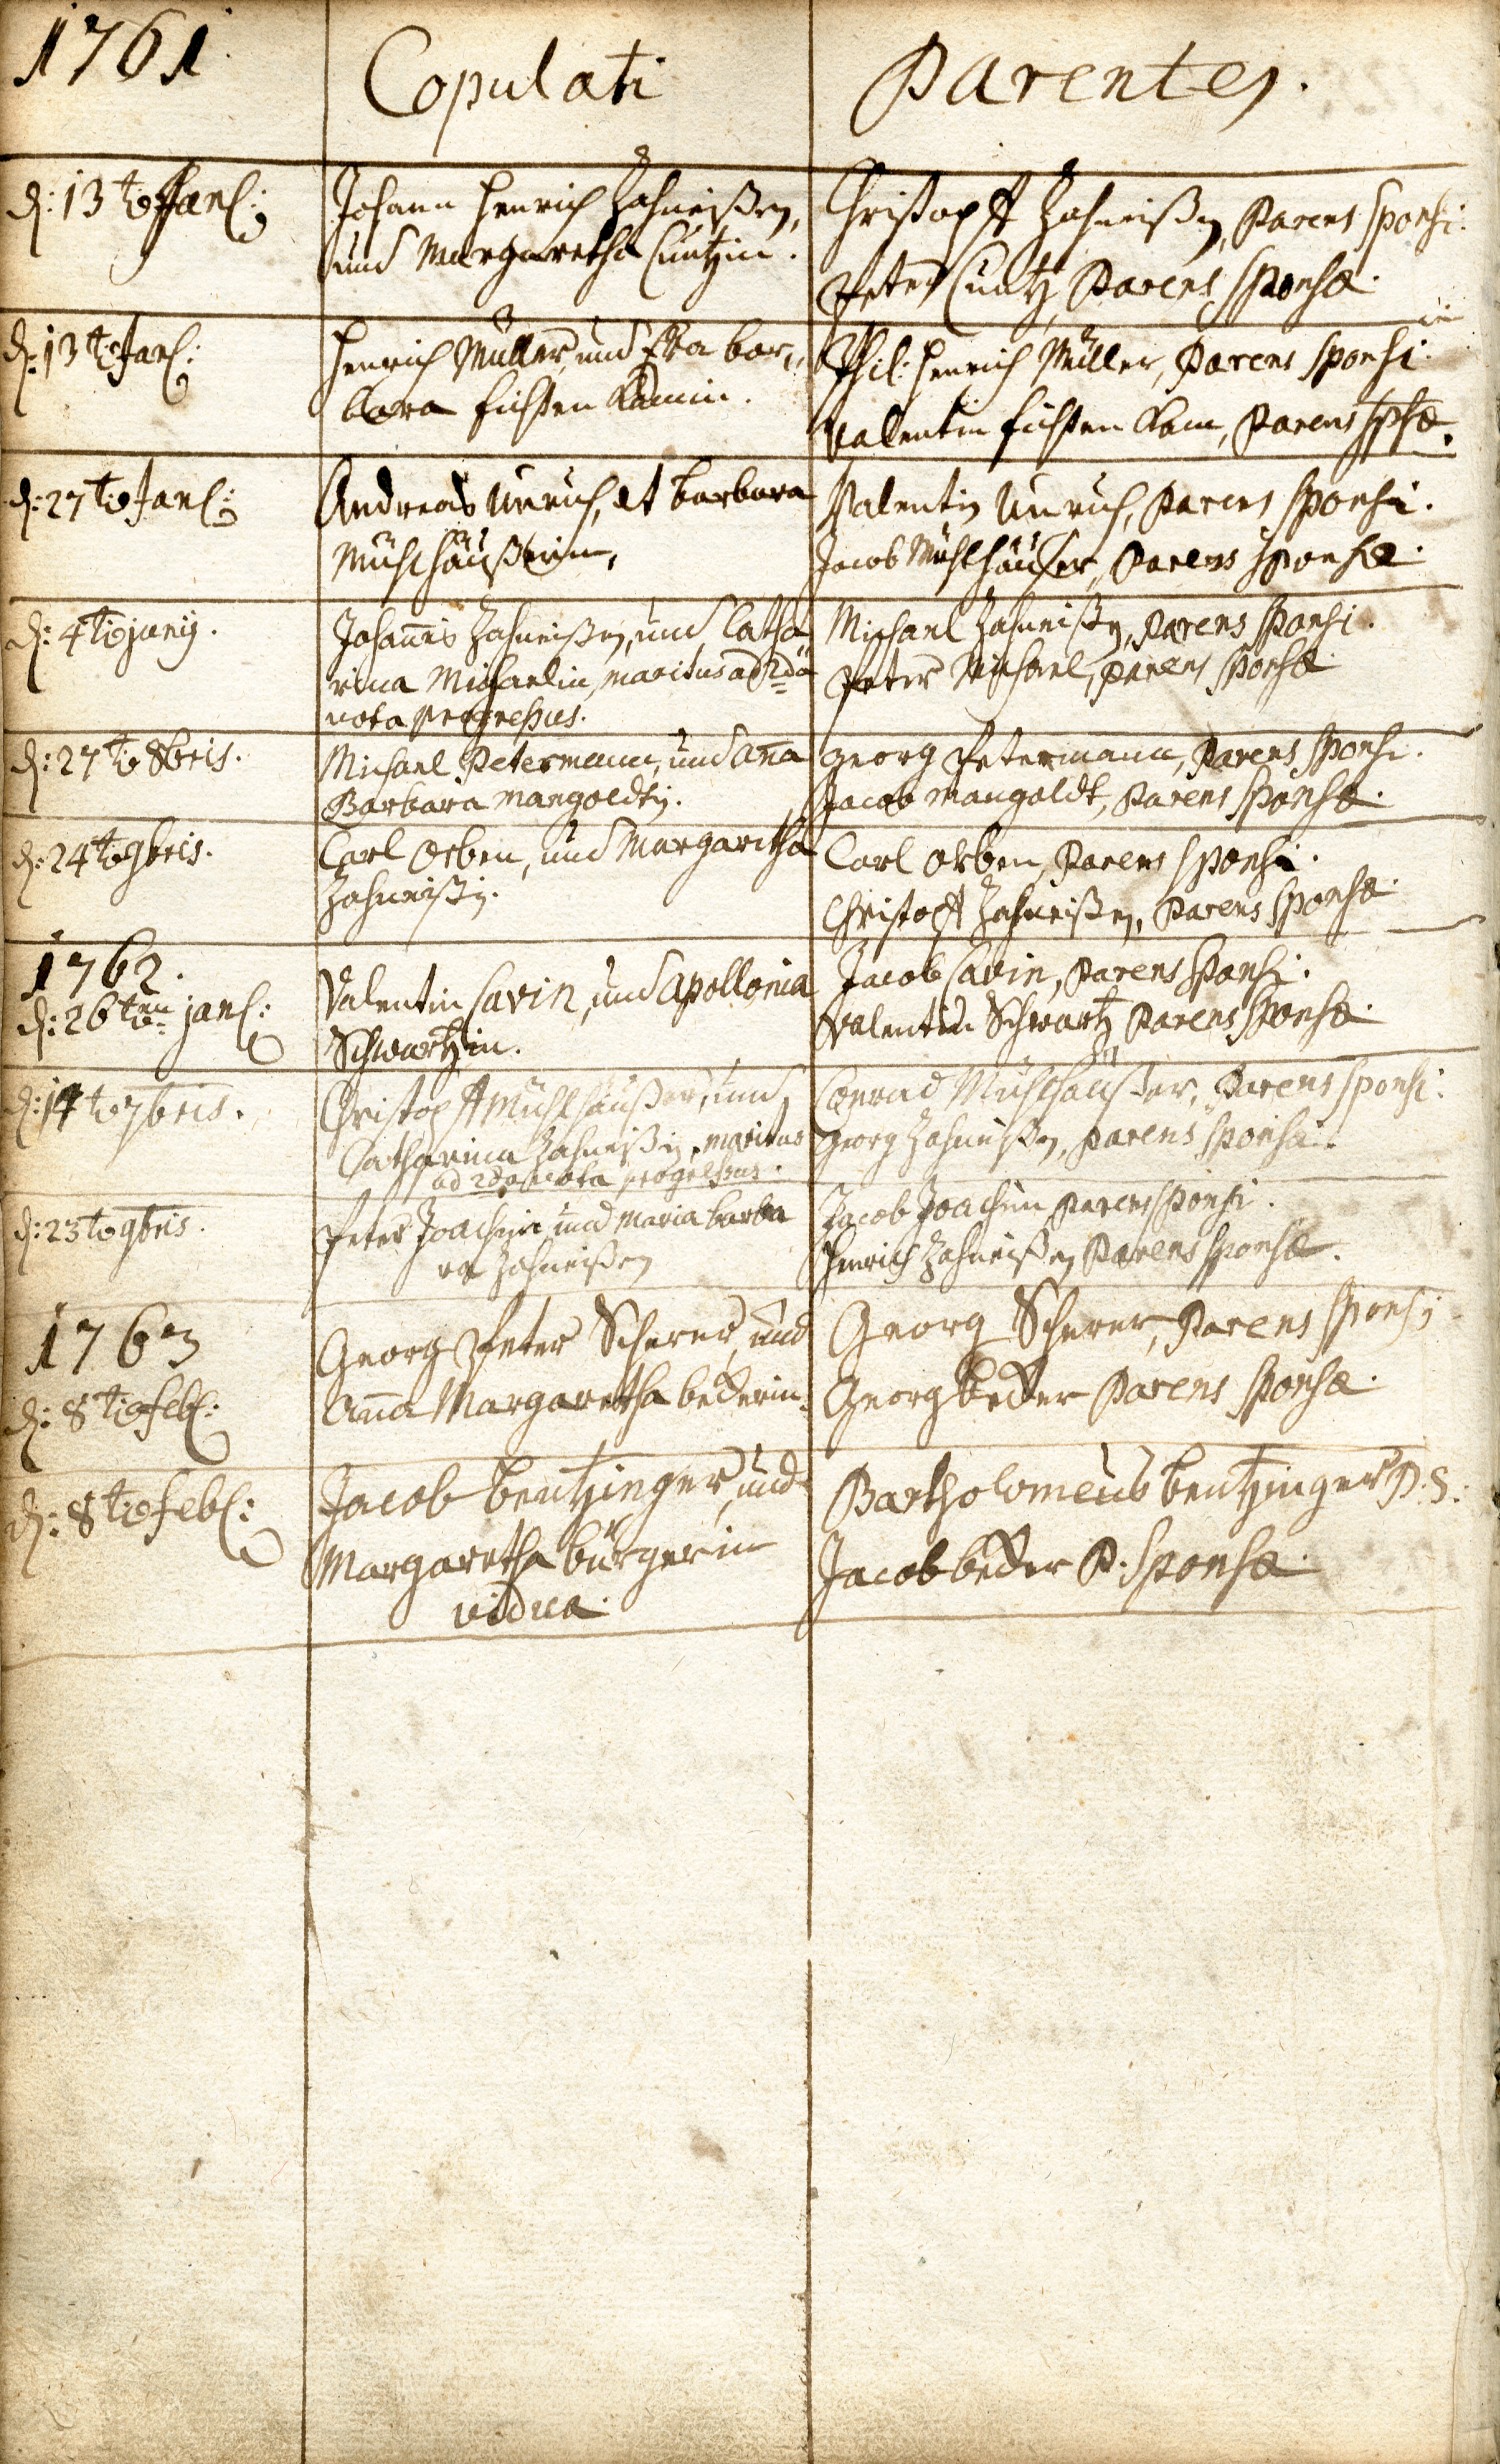 1761.
Copulati
Parentes.
d: 13to Jan:
Johann Henrich Zahneißen,
und Margaretha Cuntzin.
Christoph Zahneißen, Parens sponsi.
Peter Cuntz, Parens sponsæ.
d: 13to Jan:
Henrich Müller, und Eva bar„
bara
Phil: Henrich Müller, Parens sponsi.
Valentin Parens spsæ.
d: 27to Jan:
Andreas Unrich, et barbara
Mühlhäußerin,
Valentin Unrich, Parens sponsi.
Jacob Mühlhäußer, Parens sponsæ.
d: 4to junij.
Johannes Zahneißen, und Catha
rina Michaelin, maritus ad 2da
vota progressus.
Michael Zahneißen, Parens sponsi.
Peter Michael, parens sponsæ.
d: 27to 8bris.
Michael Petermann, und Aña
Barbara Mangoldtin.
Georg Petermann, Parens sponsi.
Jacob Mangoldt, Parens sponsæ.
d: 24to 9bris.
Carl Orben, und Margaretha
Zahneißin.
Carl Orben, Parens sponsi.
Christoph Zahneißen, Parens sponsæ.
1762.
d: 26ten jan:
Valentin Cavin, und Apollonia
Schwartzin.
Jacob Cavin, Parens sponsi.
Valentin Schwartz Parens sponsæ.
d: 14to 7bris.
Christoph Mühlhäußer, und
Catharina Zahneißin, maritus
ad 2da vota progressus.
Conrad Mühlhäußer, Parens sponsi:
Georg Zahneißen, parens sponsæ.
d: 23to 9bris.
Peter Joachim und Maria Barba
ra Zahneißen
Jacob Joachim Parens sponsi.
Henrich Zahneißen Parens sponsæ.
1763
d: 8to feb:
Georg Peter Scherer, und
Aña Margaretha beckerin.
Georg Scherer, Parens sponsi
Georg becker Parens sponsæ.
d: 8to feb:
Jacob bentzinger, und
Margaretha bürgerin
vidua.
Bartholomeus bentzinger P. S.
Jacob becker P. sponsæ.